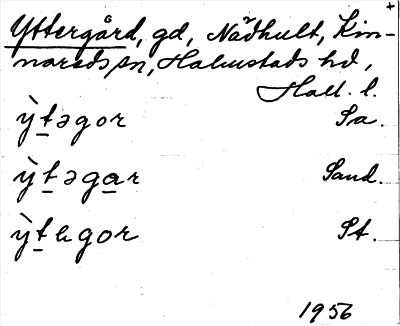 +
Yttergård, gd, Nädhult, Kin-
nareds sn, Halmstads hd,
Hall. l.
ỳtəgor Sa.
ỳtəgar Sand.
ỳtegor St.
1956